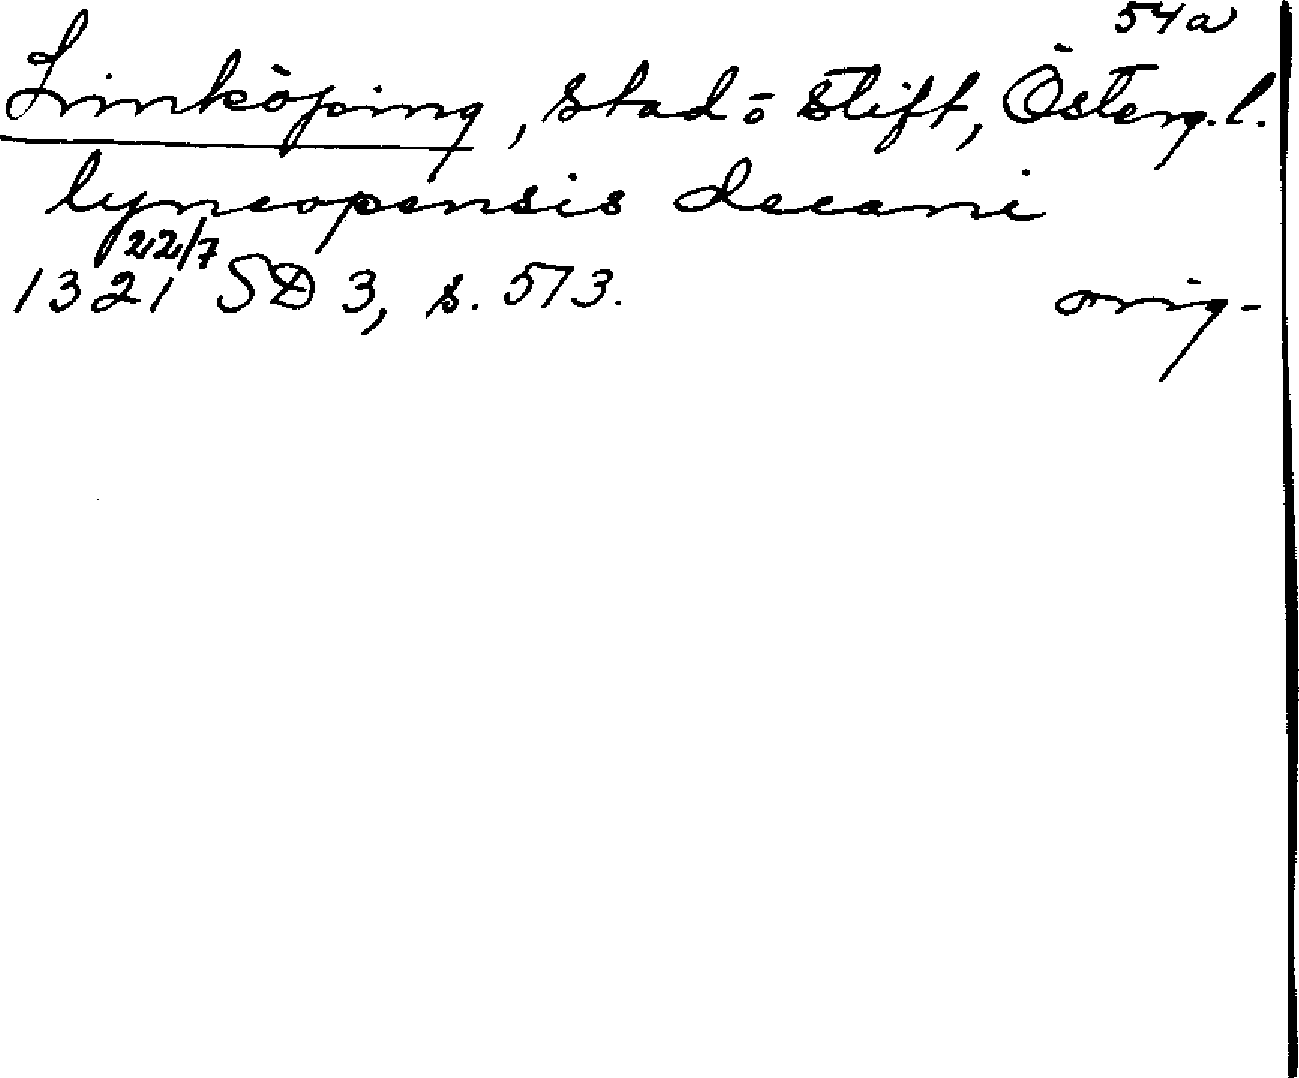 54a
Linköping, stad o stift, Österg.l.
lyncopensis decani
1321 22/7 SD 3, s. 573.
orig-